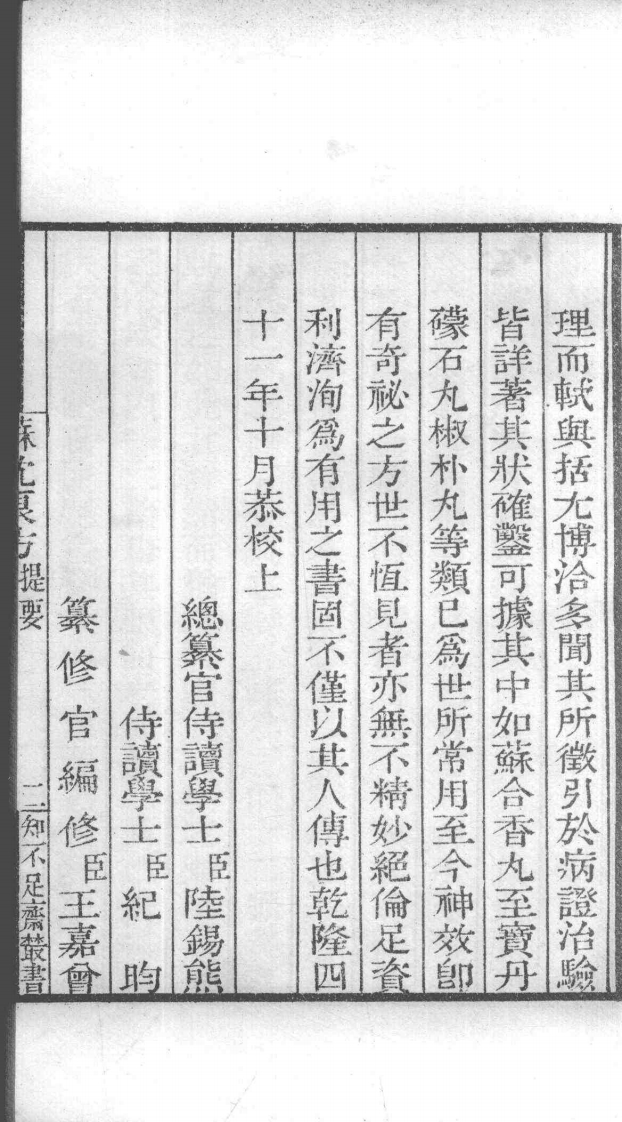 理而軾與括尤博洽多聞其所徵引於病證治驗
皆詳著其狀確鑿可據其中如蘇合香丸至寶丹
礞石丸椒朴丸等類已爲世所常用至今神效卽
有奇祕之方世不恆見者亦無不精妙絕倫足資
利濟洵爲有用之書固不僅以其人傳也乾隆四
十一年十月恭校上
總纂官侍讀學士臣陸錫熊
侍讀學士臣紀昀
纂修官編修臣王嘉曾
蘇沈良方 提要 二 知不足齋叢書